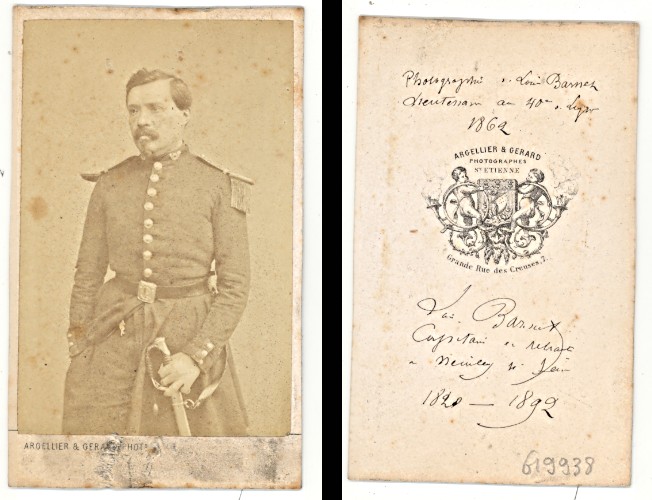 ARGELLIER & GERARD PHOT
Photographie de Louis Barnet
Lieutenant au 40me de ligne
1862
ARGELLIER & GERARD
PHOTOGRAPHES
St ETIENNE
Grande Rue des Creuses, 7.
Barnet
Capitaine en retraite
a Neuilly
1820 — 1892
619938